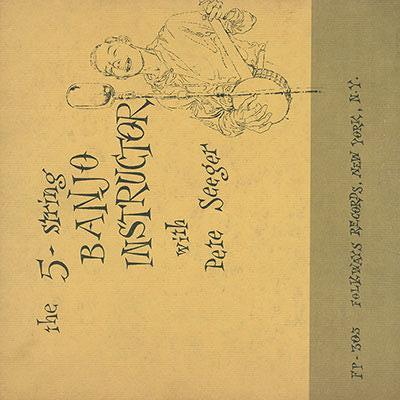 the 5-string
BANJO
INSTRUCTOR
with
Pete Seeger
FP-303 FOLKWAYS RECORDS, NEW YORK, N.Y.